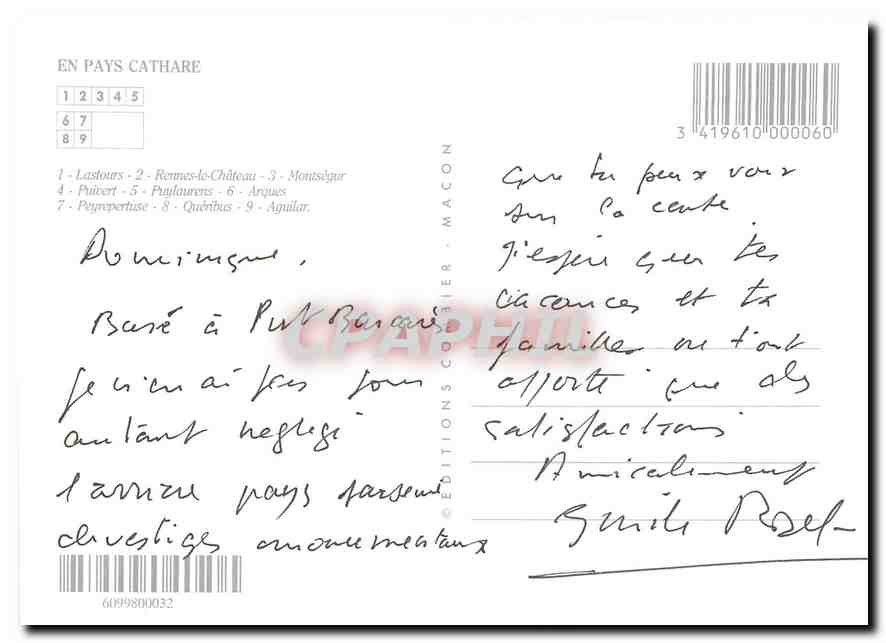 EN PAYS CATHARE
1 2 3 4 5
6 7
8 9
1 - Lastours - 2 - Rennes-le-Château - 3 - Montségur
4 - Puivert - 5 - Puylaurens - 6 - Arques
7 - Peyrepertuse - 8 - Quéribus - 9 - Aguilar.
Dominique,
Basé à Port Barcarès
je n'en ai pas pour
autant négligé
l'arrière pays parsemé
de vestiges monumentaux
6099800032
© EDITIONS COMBIER - MACON
3 419610 000060
que tu peux voir
sur la carte.
J'espère que tes
vacances et ta
famille ne t'ont
apporté que des
satisfactions
Amicalement
CPAPHIL